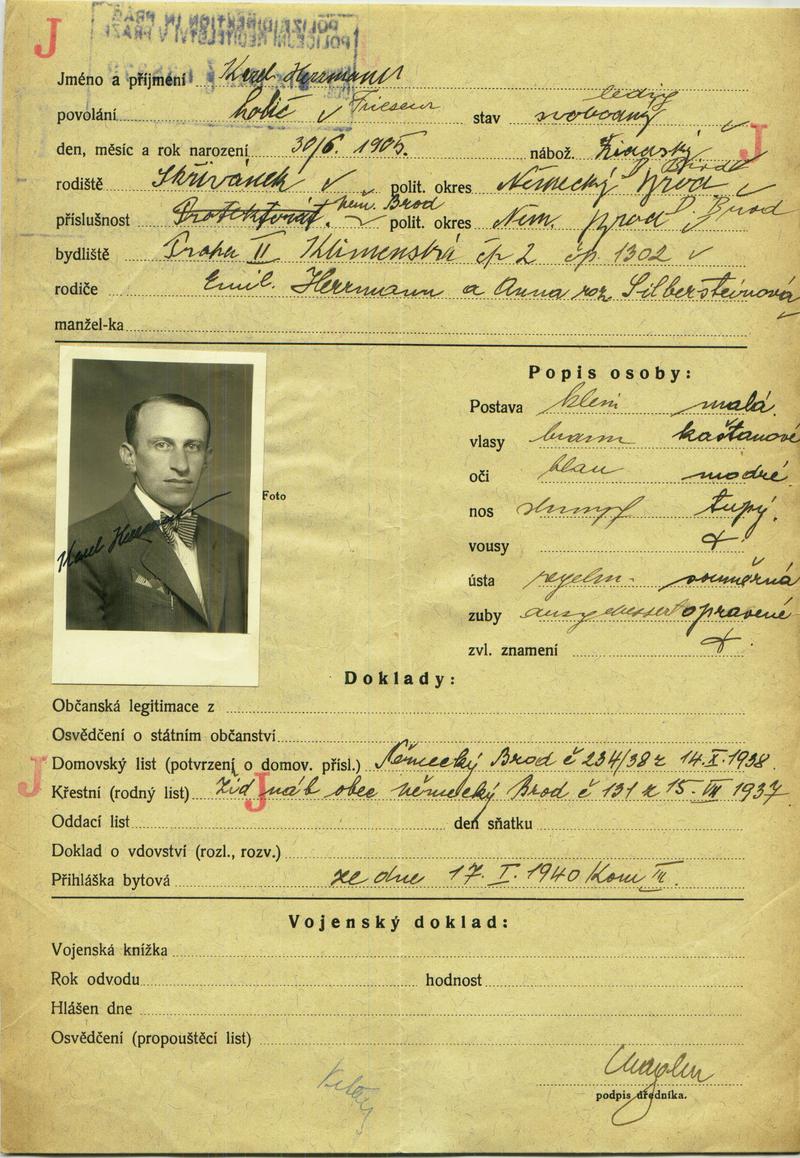 J
POLIZEIDIREKTION IN PRAG
POLICEJNÍ ŘEDITELSTVÍ V PRAZE
Jméno a příjmení Karel Herrmann
povolání holič Friseur stav svobodný ledig
den, měsíc a rok narození 30/6. 1905. nábož. židovský J
rodiště Skřivánek polit. okres Německý Brod D. Brod
příslušnost Protektorát. Něm. Brod polit. okres Něm. Brod D. Brod
bydliště Praha II Klimenská čp 2 čp. 1302
rodiče Emil. Herrmann a Anna roz Silbersteinová
manžel-ka
Popis osoby:
Postava klein malá.
vlasy braun kaštanové
oči blau modré.
Karel Herrmann
Foto
nos stumpf tupý.
vousy
ústa regelm. souměrná
zuby ausgebessert opravené
zvl. znamení
Doklady:
Občanská legitimace z
Osvědčení o státním občanství
J Domovský list (potvrzení o domov. přísl.) Německý Brod č 234/38 z 14.X.1938.
Křestní (rodný list) Žid náb obec německý Brod č 131 z 15. VII 1937. J
Oddací list den sňatku
Doklad o vdovství (rozl., rozv.)
Přihláška bytová ze dne 17. I. 1940 Kom III.
Vojenský doklad:
Vojenská knížka
Rok odvodu hodnost
Hlášen dne
Osvědčení (propouštěcí list)
podpis úředníka.